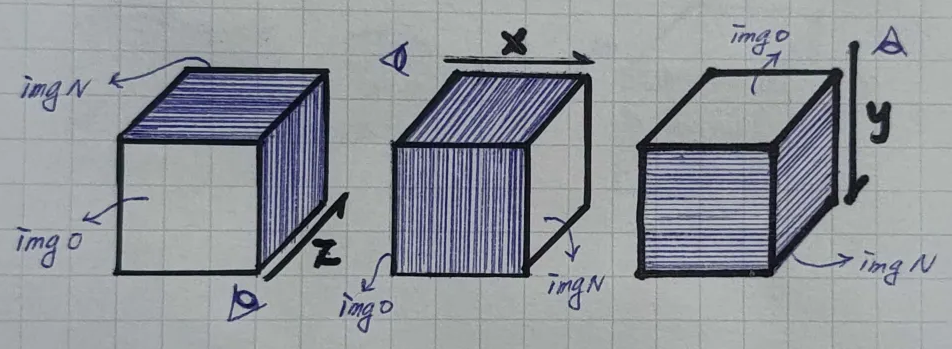 img N
img 0
z
x
img 0
img N
img 0
y
img N